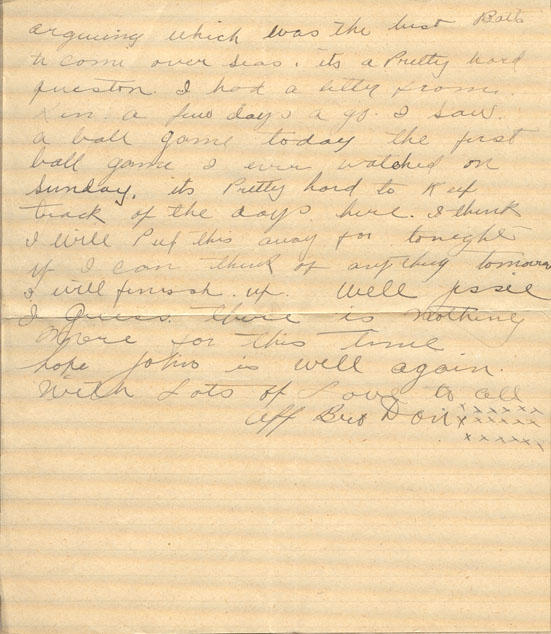 arguing which was the best Batts
to come over seas. its a Pretty hard
question. I had a letter from
a few days a go. I saw.
a ball game today the first
ball game I ever watched on
Sunday. its Pretty hard to Keep
track of the days here. I think
I will Put this away for tonight
if I can think of anything tomorrow
I will finish up. Well Jessie
I Guess there is nothing
more for this time
hope John is well again.
With Lots of Love to all
Aff Bro Don xxxxxx
xxxxxx
xxxxxx